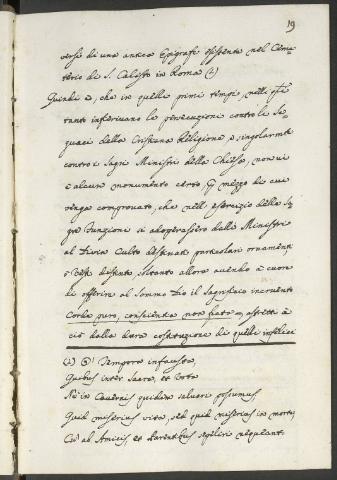 19
versi di una antica Epigrafe esistente nel Cime=
terio di S. Calisto in Roma (1)
Quindi è, che in quelli primi tempi, nelli q.li
tanto inferivano le persecuzioni contro li Se=
guaci della Cristiana Religione, e singolarm.te
contro i Sagri Ministri della Chiesa, non vi
è alcun monumento certo, p mezzo di cui
venga comprovato, che nell' esercizio delle Sa=
gre Funzioni si adoperassero dalli Ministri
al Divin Culto destinati particolari ornamenti,
e Vesti distinte, soltanto allora avendo a cuore
di offerire al Sommo Dio il Sagrifizio incruento
Corde puro, conscientia non ficta, astretti a
ciò dalla dura costituzione di quelli infelici
(1) O Tempora infausta,
Quibus inter Sacra, et Vota
Ne in Cavernis quidem salvari possumus,
Quid miserius vita, sed quid miserius in morte
Cū ab Amicis, et Parentibus sepeliri nequeant.